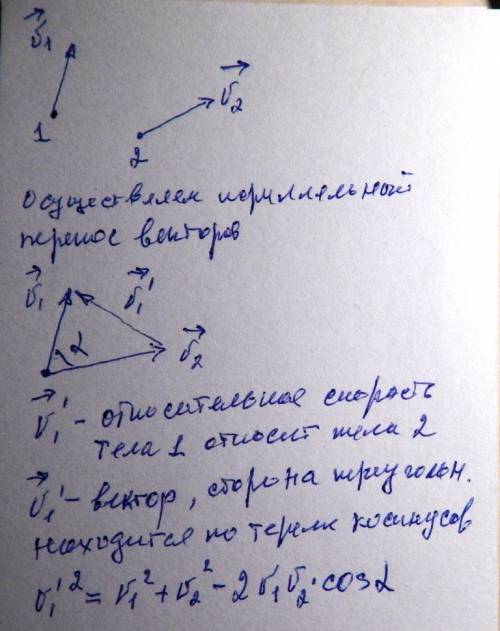 v⃗₁
1
v⃗₂
2
Осуществляем параллельный
перенос векторов
v⃗₁ v⃗₁'
α v⃗₂
v⃗₁' - относительная скорость
тела 1 относит тела 2
v⃗₁' - вектор, сторона треугольн.
находится по терем косинусов
v₁'² = v₁² + v₂² - 2v₁v₂·cosα